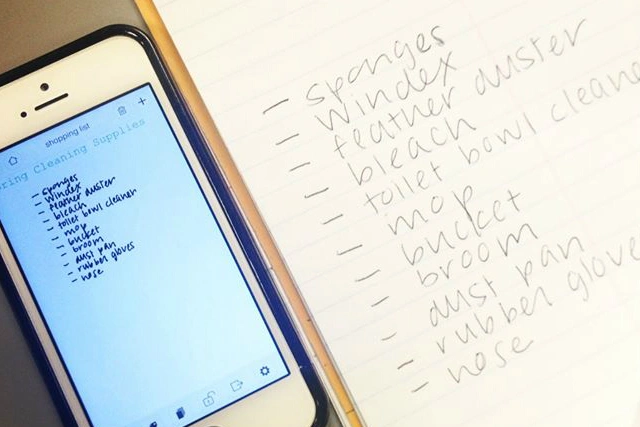 shopping list
ring Cleaning Supplies
- sponges
- Windex
- feather duster
- bleach
- toilet bowl cleaner
- mop
- bucket
- broom
- dust pan
- rubber gloves
- hose
- sponges
- Windex
- feather duster
- bleach
- toilet bowl cleane
- mop
- bucket
- broom
- dust pan
- rubber glove
- hose